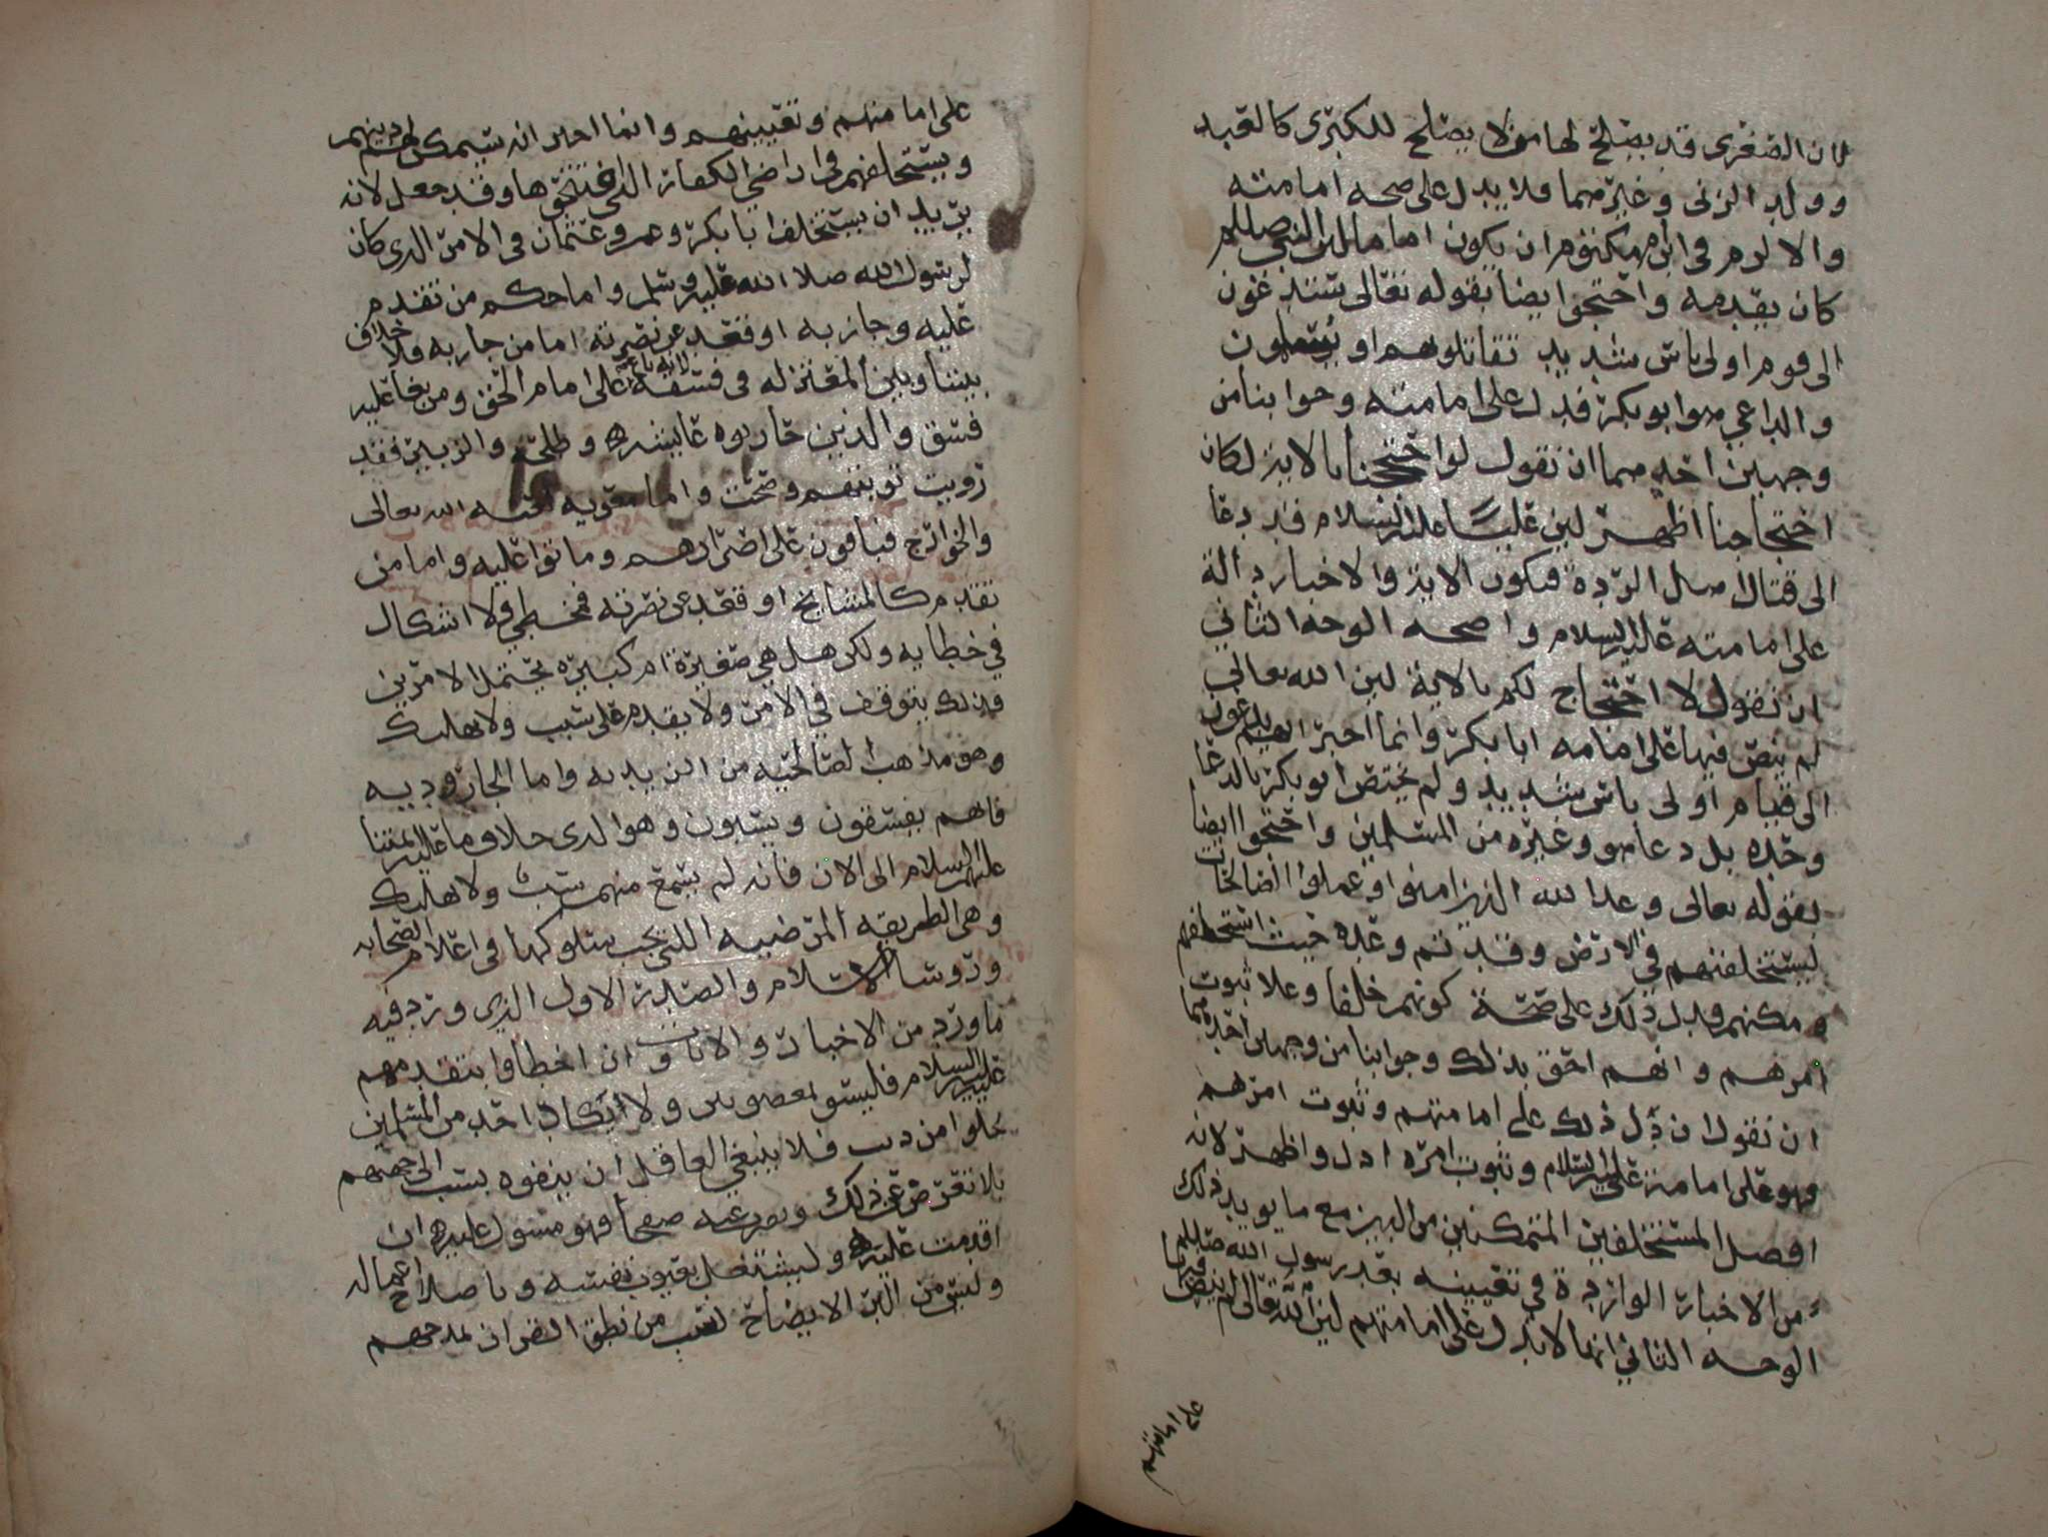 فان الصغرى قد يصلح لها من لا يصلح للكبرى كالعبد
وولد الزنى وغيرهما فلا يدل على صحه امامته
والا لزم في ابن ام مكتوم ان يكون اماما لان النبي صللم
كان يقدمه واحتجوا ايضا بقوله تعالى ستدعون
الى قوم اولى باس شديد تقاتلونهم او يسلمون
والداعي هو ابو بكر فدل على امامته وجوابنا من
وجهين احدهما ان نقول لو احتججنا بالايه لكان
احتجاجنا اظهر لين عليا عليه السلام قد دعا
الى قتال اهل الردة فتكون الاية والاخبار دالة
على امامته عليه السلام واضحه الوجه الثاني
ان نقول لا احتجاج لكم بالاية لين الله تعالى
لم ينص فيها على امامه ابا بكر وانما اخبر انهم يدعون
الى قيام اولى باس شديد ولم يختص ابو بكر بالدعا
وحده بل دعا هو وغيره من المسلمين واحتجوا ايضا
بقوله تعالى وعد الله الذين امنوا وعملوا الصالحات
ليستخلفنهم في الارض وقد تم وعده حيث استخلفهم
ومكنهم فدل ذلك على صحة كونهم خلفا وعلا ثبوت
امرهم وانهم احق بذلك وجوابنا من وجهين احدهما
ان نقول ان دل ذلك على امامتهم وثبوت امرهم
فهو على امامته عليه السلام وثبوت امره ادل واظهر لانه
افضل المستخلفين المتمكنين من الدين مع ما يويد ذلك
من الاخبار الواردة في تعيينه بعد رسول الله صللم
الوجه الثاني انها لا تدل على امامتهم لين الله تعالى لم ينص فيها
على امامتهم
على امامتهم وتعيينهم وانما اخبر انه سيمكن لهم دينهم
ويستخلفهم في اراضي الكفار التي افتتحوها وقد جعل لانه
يريد ان يستخلف ابا بكر وعمر وعثمان في الامر الذي كان
لرسول الله صلا الله عليه وسلم واما حكم من تقدم
عليه وحاربه او قعد عن نصرته اما من حاربه فلا خلاف
بيننا وبين المعتزله في فسقه لانه باغي على امام الحق ومن بغا عليه
فسق والذين حاربوه عايشه وطلحه والزبير فقد
رويت توبتهم وصحت واما معويه لعنه الله تعالى
والخوارج فباقون على اصرارهم وماتوا عليه واما من
تقدم كالمشايخ او قعد عن نصرته فمخطي ولا اشكال
في خطايه ولكن هل هي صغيرة ام كبيره يحتمل الامرين
فلذلك يتوقف في الامر ولا يقدم على سبب ولا هلاك
وهو مذهب الصالحيه من الزيديه واما الجاروديه
فانهم يفسقون ويسبون وهو الذى خلاف ما عليه ايمتنا
عليهم السلام الى الان فانه لم يسمع منهم سب ولا هلاك
وهي الطريقه المرضيه اللتي يجب سلوكها في اعلام الصحابه
وروسا الاسلام والصدر الاول الذي ورد فيه
ما ورد من الاخبار والايات وان اخطاوا بتقدمهم
عليه السلام فليسو بمعصومين ولا يكاد احد من المسلمين
يخلوا من ذنب فلا ينبغي لعاقل ان يتفوه بسب الى جهتهم
بلا تعرض عن ذلك وتضرب عنه صفحا فهو مسول عليه ان
اقدمت عليه وليشتغل بعيوب نفسه وباصلاح اعماله
وليس من الدين الايضاح لسب من نطق القران بمدحهم